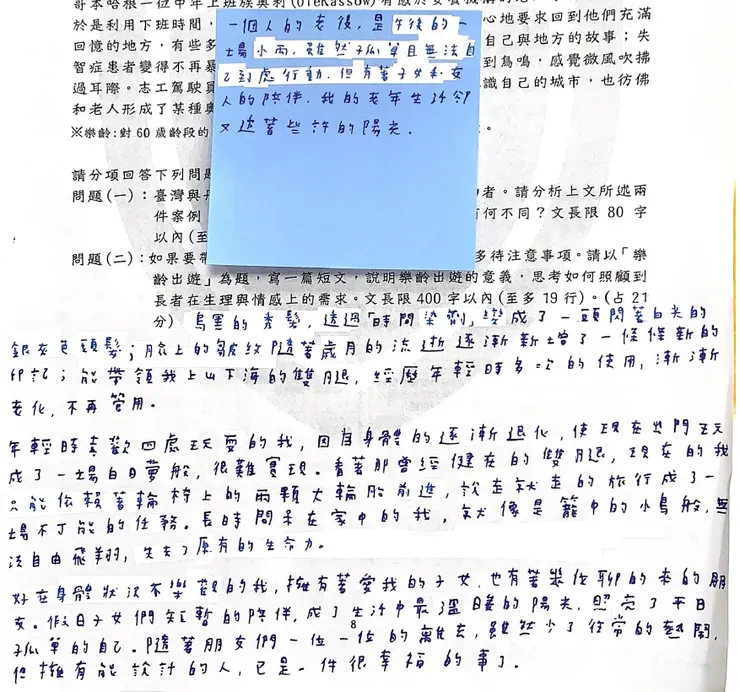 哥本哈根一位中年上班族奧利(OleKassow)有感於安養機構的
於是利用下班時間，
心地要求回到他們充滿
回憶的地方，有些多
自己與地方的故事；失
智症患者變得不再暴
到鳥鳴，感覺微風吹拂
過耳際。志工駕駛員
識自己的城市，也彷彿
和老人形成了某種
※樂齡：對60歲齡段的
一個人的老後，是午後的一
場小雨，雖然孤單且無法自
己到處行動，但有著子女和友
人的陪伴，我的老年生活卻
又透著些許的陽光。
請分項回答下列問題
問題(一)：臺灣與丹
者。請分析上文所述兩
件案例
有何不同？文長限 80 字
以內(至
問題(二)：如果要帶
多待注意事項。請以「樂
齡出遊」為題，寫一篇短文，說明樂齡出遊的意義，思考如何照顧到
長者在生理與情感上的需求。文長限 400 字以內(至多 19 行)。(占 21
分)
烏黑的秀髮，透過「時間染劑」變成了一頭閃著白光的
銀灰色頭髮；臉上的皺紋隨著歲月的流逝逐漸新增了一條條新的
印記；能帶領我上山下海的雙腿，經歷年輕時多次的使用，漸漸
老化，不再管用。
年輕時喜歡四處玩耍的我，因自身體的逐漸退化，使現在出門玩
成了一場白日夢般，很難實現。看著那曾經健在的雙腿，現在的我
只能依賴著輪椅上的兩顆大輪胎前進，說走就走的旅行成了一
場不可能的任務。長時間呆在家中的我，就像是籠中的小鳥般，無
法自由飛翔，失去了原有的生命力。
好在身體狀況不樂觀的我，擁有著愛我的子女，也有著幾位聊的來的朋
友。假日子女們短暫的陪伴，成了生活中最溫暖的陽光，照亮了平日
孤單的自己。隨著朋友們一位一位的離去，雖然少了往常的熱鬧，
但擁有能談話的人，已是一件很幸福的事了。
8